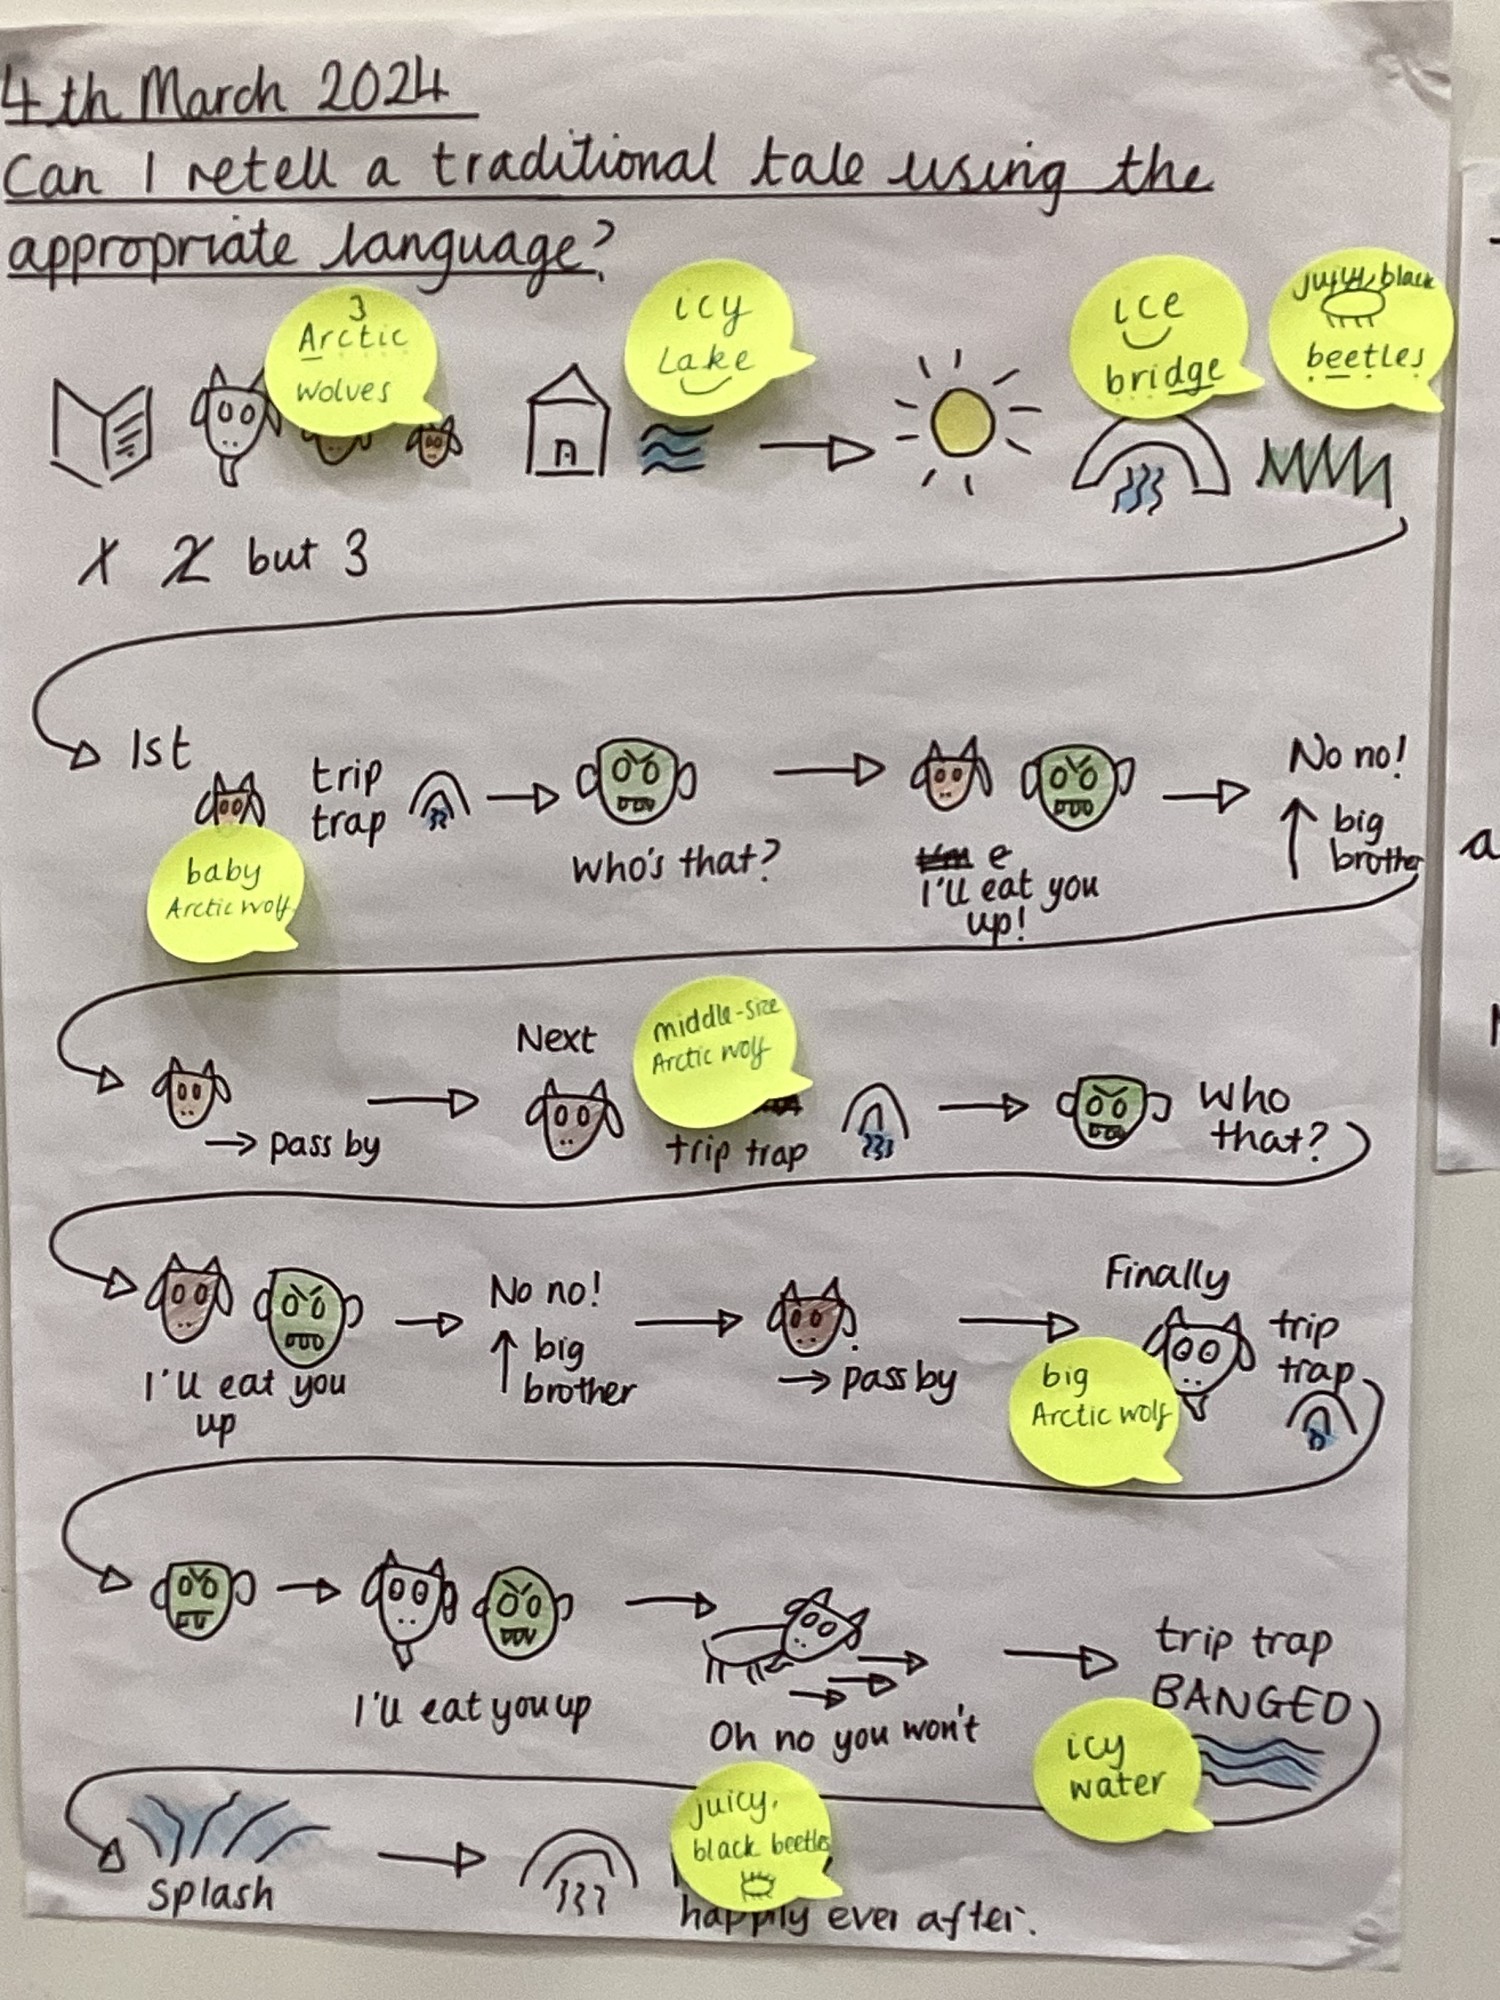 4th March 2024
Can I retell a traditional tale using the
appropriate language?
3
Arctic
wolves
icy
Lake
ice
bridge
juicy, black
beetles
1 2 but 3
1st
trip
trap
baby
Arctic wolf
who's that?
I'm e
I'll eat you
up!
No no!
big
brother
pass by
Next
middle-size
Arctic wolf
trip trap
who
that?
I'll eat you
up
No no!
big
brother
pass by
Finally
big
Arctic wolf
trip
trap
I'll eat you up
Oh no you won't
trip trap
BANGED
icy
water
splash
juicy,
black beetles
happily ever after.